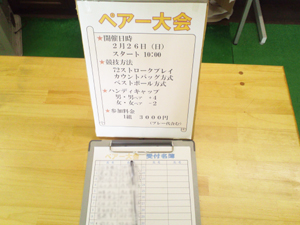 ペアー大会
★開催日時
2月26日（日）
スタート 10:00
★競技方法
72ストロークプレイ
カウントバック方式
ベストボール方式
★ハンディキャップ
男・男→ -4
女・女→ -2
★参加料金
1組 3000円
受付名簿